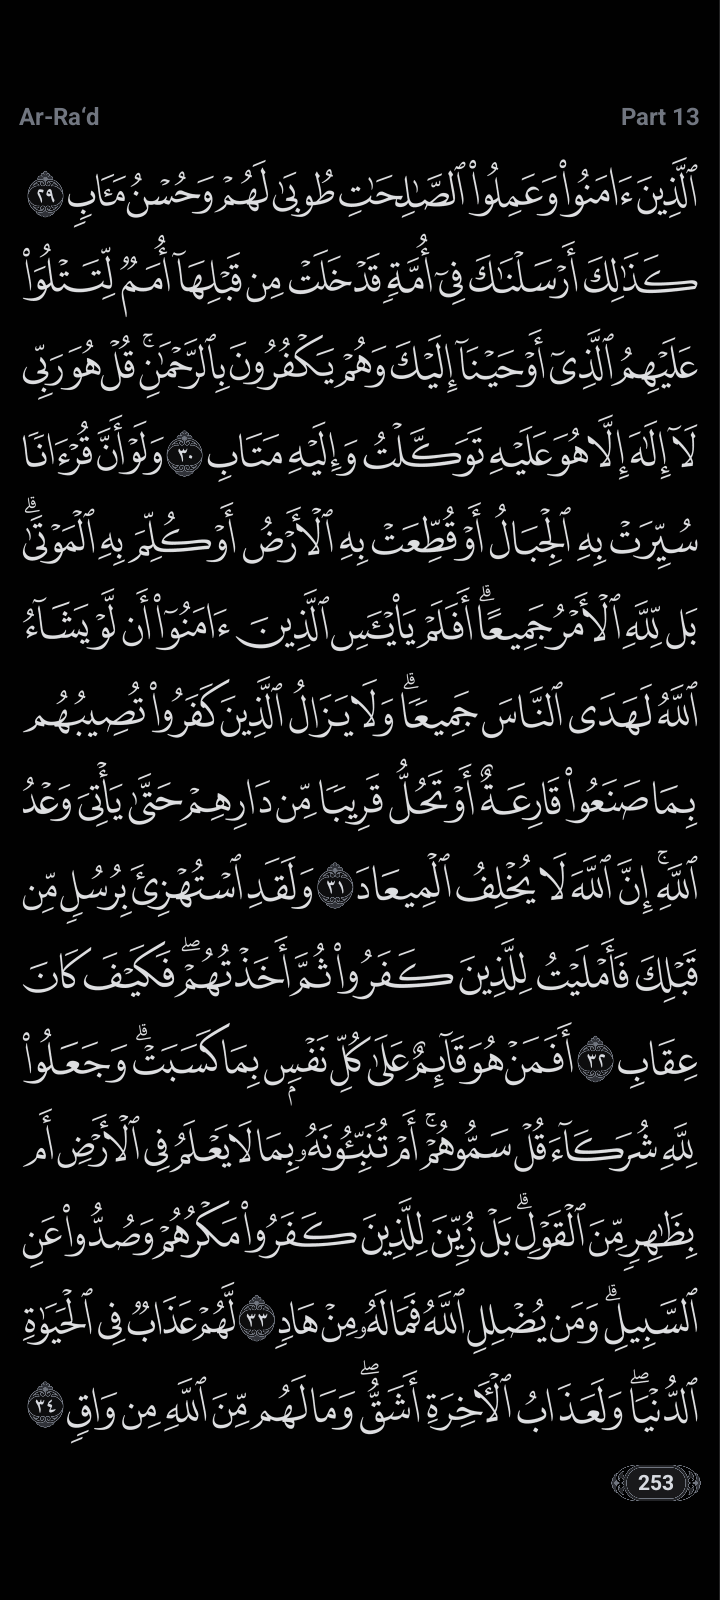 Ar-Ra‘d
Part 13
ٱلَّذِينَ ءَامَنُوا۟ وَعَمِلُوا۟ ٱلصَّـٰلِحَـٰتِ طُوبَىٰ لَهُمْ وَحُسْنُ مَـَٔابٍ ٢٩
كَذَٰلِكَ أَرْسَلْنَـٰكَ فِىٓ أُمَّةٍ قَدْ خَلَتْ مِن قَبْلِهَآ أُمَمٌ لِّتَتْلُوَا۟
عَلَيْهِمُ ٱلَّذِىٓ أَوْحَيْنَآ إِلَيْكَ وَهُمْ يَكْفُرُونَ بِٱلرَّحْمَـٰنِ ۚ قُلْ هُوَ رَبِّى
لَآ إِلَـٰهَ إِلَّا هُوَ عَلَيْهِ تَوَكَّلْتُ وَإِلَيْهِ مَتَابِ ٣٠ وَلَوْ أَنَّ قُرْءَانًا
سُيِّرَتْ بِهِ ٱلْجِبَالُ أَوْ قُطِّعَتْ بِهِ ٱلْأَرْضُ أَوْ كُلِّمَ بِهِ ٱلْمَوْتَىٰ ۗ
بَل لِّلَّهِ ٱلْأَمْرُ جَمِيعًا ۗ أَفَلَمْ يَا۟يْـَٔسِ ٱلَّذِينَ ءَامَنُوٓا۟ أَن لَّوْ يَشَآءُ
ٱللَّهُ لَهَدَى ٱلنَّاسَ جَمِيعًا ۗ وَلَا يَزَالُ ٱلَّذِينَ كَفَرُوا۟ تُصِيبُهُم
بِمَا صَنَعُوا۟ قَارِعَةٌ أَوْ تَحُلُّ قَرِيبًا مِّن دَارِهِمْ حَتَّىٰ يَأْتِىَ وَعْدُ
ٱللَّهِ ۚ إِنَّ ٱللَّهَ لَا يُخْلِفُ ٱلْمِيعَادَ ٣١ وَلَقَدِ ٱسْتُهْزِئَ بِرُسُلٍ مِّن
قَبْلِكَ فَأَمْلَيْتُ لِلَّذِينَ كَفَرُوا۟ ثُمَّ أَخَذْتُهُمْ ۖ فَكَيْفَ كَانَ
عِقَابِ ٣٢ أَفَمَنْ هُوَ قَآئِمٌ عَلَىٰ كُلِّ نَفْسٍۭ بِمَا كَسَبَتْ ۗ وَجَعَلُوا۟
لِلَّهِ شُرَكَآءَ قُلْ سَمُّوهُمْ ۚ أَمْ تُنَبِّـُٔونَهُۥ بِمَا لَا يَعْلَمُ فِى ٱلْأَرْضِ أَم
بِظَـٰهِرٍ مِّنَ ٱلْقَوْلِ ۗ بَلْ زُيِّنَ لِلَّذِينَ كَفَرُوا۟ مَكْرُهُمْ وَصُدُّوا۟ عَنِ
ٱلسَّبِيلِ ۗ وَمَن يُضْلِلِ ٱللَّهُ فَمَا لَهُۥ مِنْ هَادٍ ٣٣ لَّهُمْ عَذَابٌ فِى ٱلْحَيَوٰةِ
ٱلدُّنْيَا ۖ وَلَعَذَابُ ٱلْـَٔاخِرَةِ أَشَقُّ ۖ وَمَا لَهُم مِّنَ ٱللَّهِ مِن وَاقٍ ٣٤
253